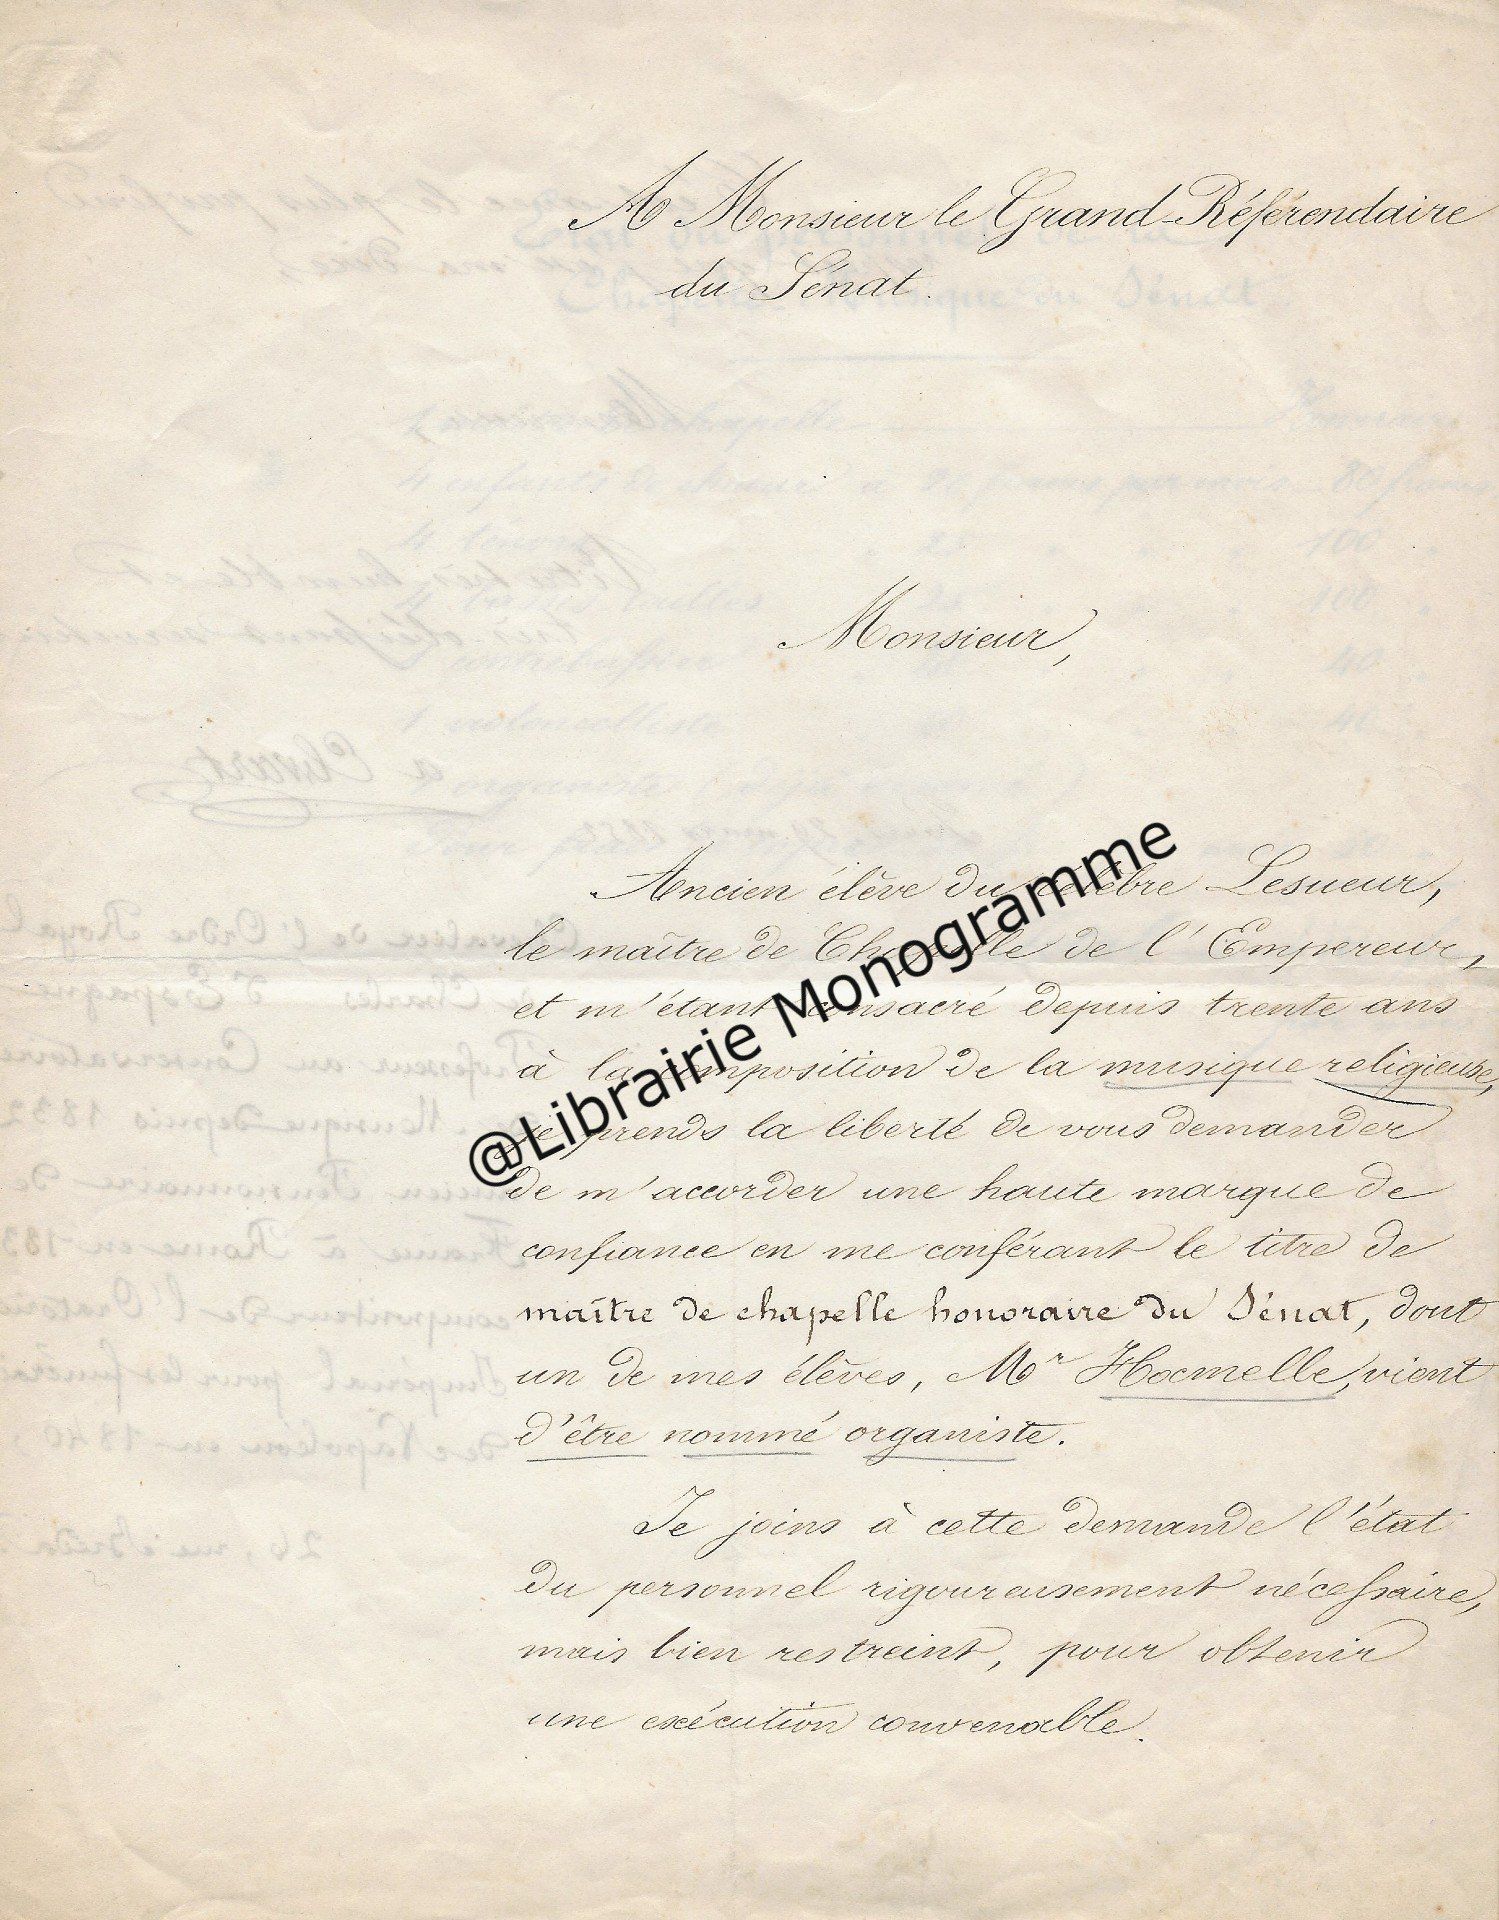 A Monsieur le Grand-Référendaire
du Sénat.
Monsieur,
Ancien élève du célèbre Lesueur,
le maître de Chapelle de l'Empereur,
et m'étant consacré depuis trente ans
à la composition de la musique religieuse,
je prends la liberté de vous demander
de m'accorder une haute marque de
confiance en me conférant le titre de
maître de chapelle honoraire du Sénat, dont
un de mes élèves, Mr Hocmelle, vient
d'être nommé organiste.
Je joins à cette demande l'état
du personnel rigoureusement nécessaire,
mais bien restreint, pour obtenir
une exécution convenable.
@Librairie Monogramme